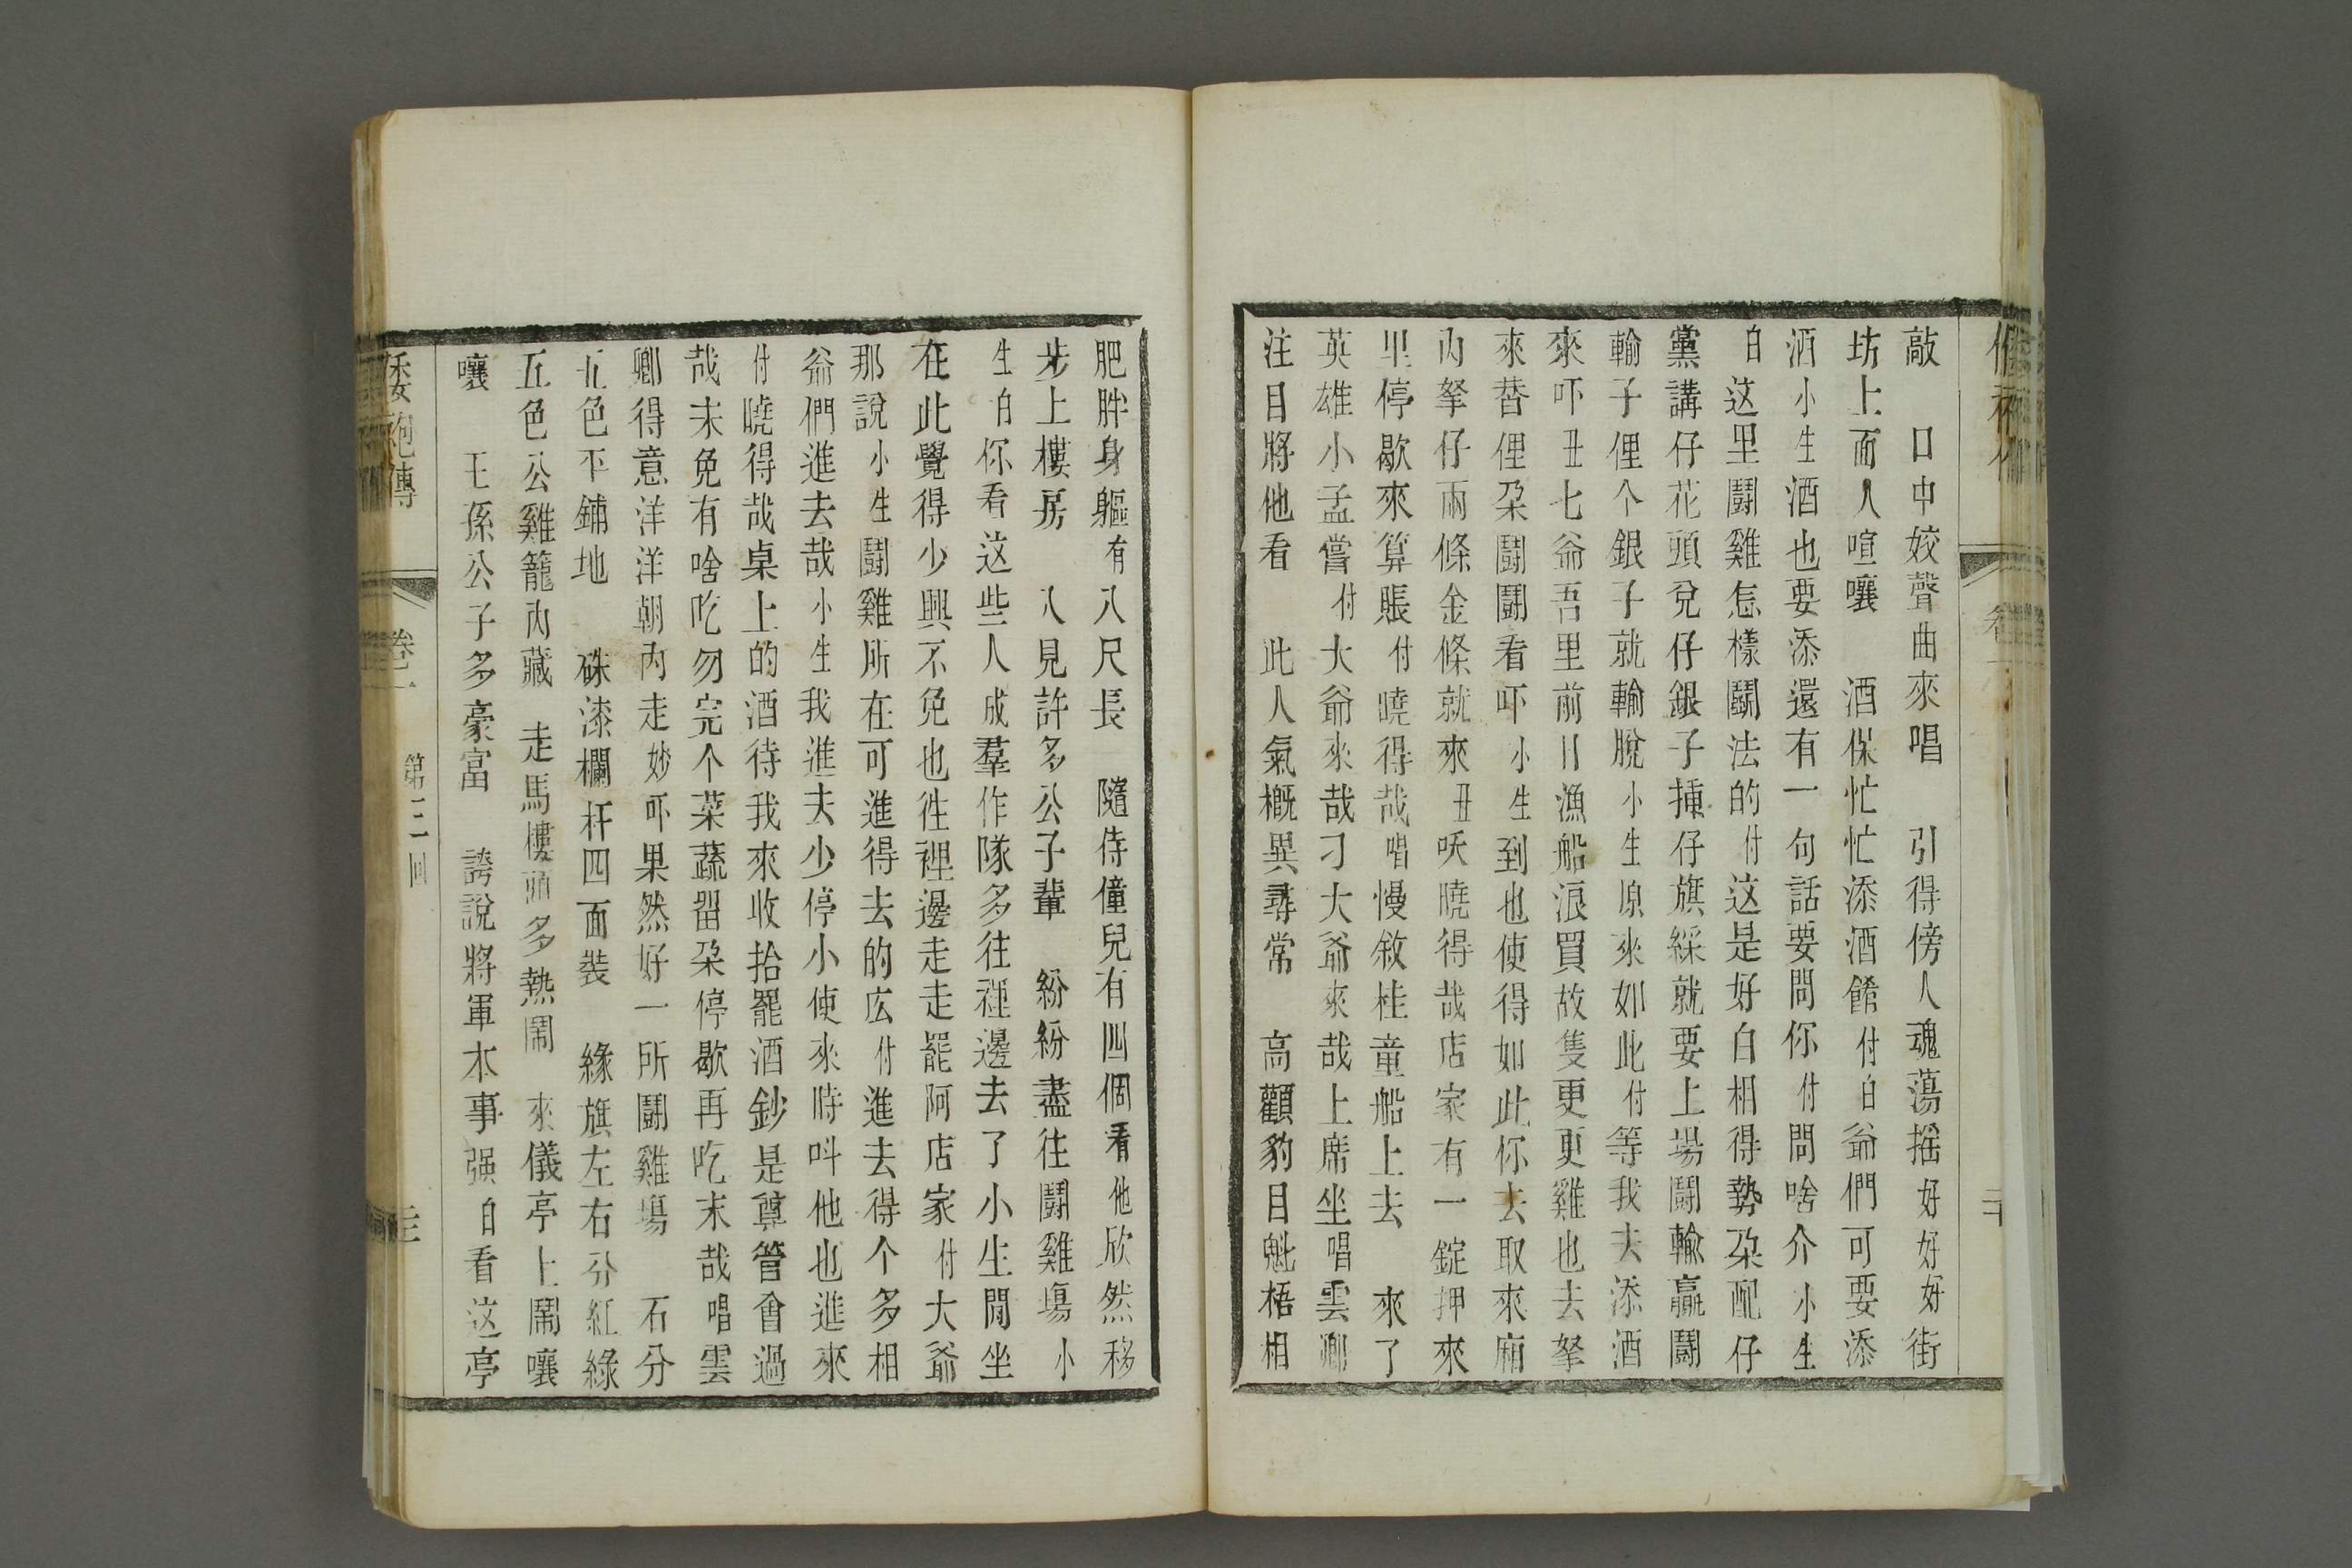 敲　口中姣聲曲來唱　引得傍人魂蕩搖好好好街
坊上面人喧嚷　酒保忙忙添酒餚付白爺們可要添
酒小生酒也要添還有一句話要問你付問啥介小生
白这里鬪雞怎樣鬪法的付这是好白相得勢朶配仔
黨講仔花頭兌仔銀子揷仔旗綵就要上場鬪輸贏鬪
輸子俚个銀子就輸脫小生原來如此付等我去添酒
來吓丑七爺吾里前日漁船浪買故隻更更雞也去拏
來替俚朶鬪鬪看吓小生到也使得如此你去取來廂
內拏仔兩條金條就來丑呅曉得哉店家有一錠押來
里停歇來算賬付曉得哉唱慢敘桂童船上去　來了
英雄小孟嘗付大爺來哉刁大爺來哉上席坐唱雲卿
注目將他看　此人氣概異尋常　高顴豹目魁梧相
肥胖身軀有八尺長　隨侍僮兒有四個看他欣然移
步上樓房　八見許多公子輩　紛紛盡往鬪雞塲小
生白你看这些人成羣作隊多往裡邊去了小生閒坐
在此覺得少興不免也往裡邊走走罷阿店家付大爺
那說小生鬪雞所在可進得去的広付進去得个多相
爺們進去哉小生我進去少停小使來時叫他也進來
付曉得哉桌上的酒待我來收拾罷酒鈔是尊管會過
哉未免有啥吃勿完个菜蔬畱朶停歇再吃末哉唱雲
卿得意洋洋朝內走妙吓果然好一所鬪雞塲　石分
五色平鋪地　硃漆欄杆四面裝　綠旗左右分紅綠
五色公雞籠內藏　走馬樓頭多熱鬧　來儀亭上鬧嚷
嚷　王孫公子多豪富　誇說將軍本事强白看这亭
倭袍傳　卷一　第三回　三